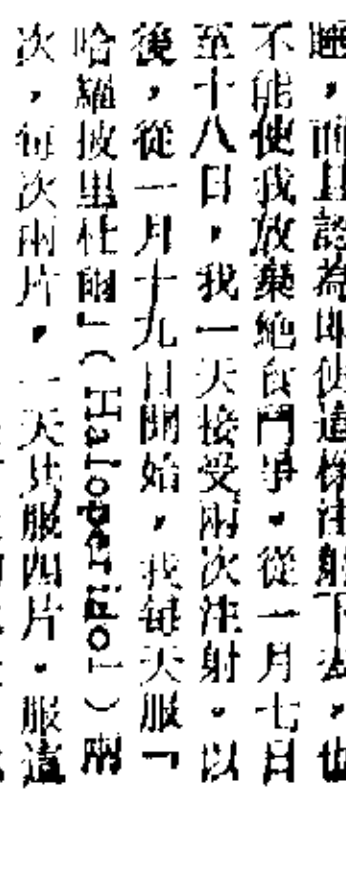 睡，而且認為即使這樣注射下去，也
不能使我放棄絶食鬥爭。從一月七日
至十八日，我一天接受兩次注射。以
後，從一月十九日開始，我每天服「
哈羅披里杜爾」（Haloperidol）兩
次，每次兩片，一天共服四片。服這